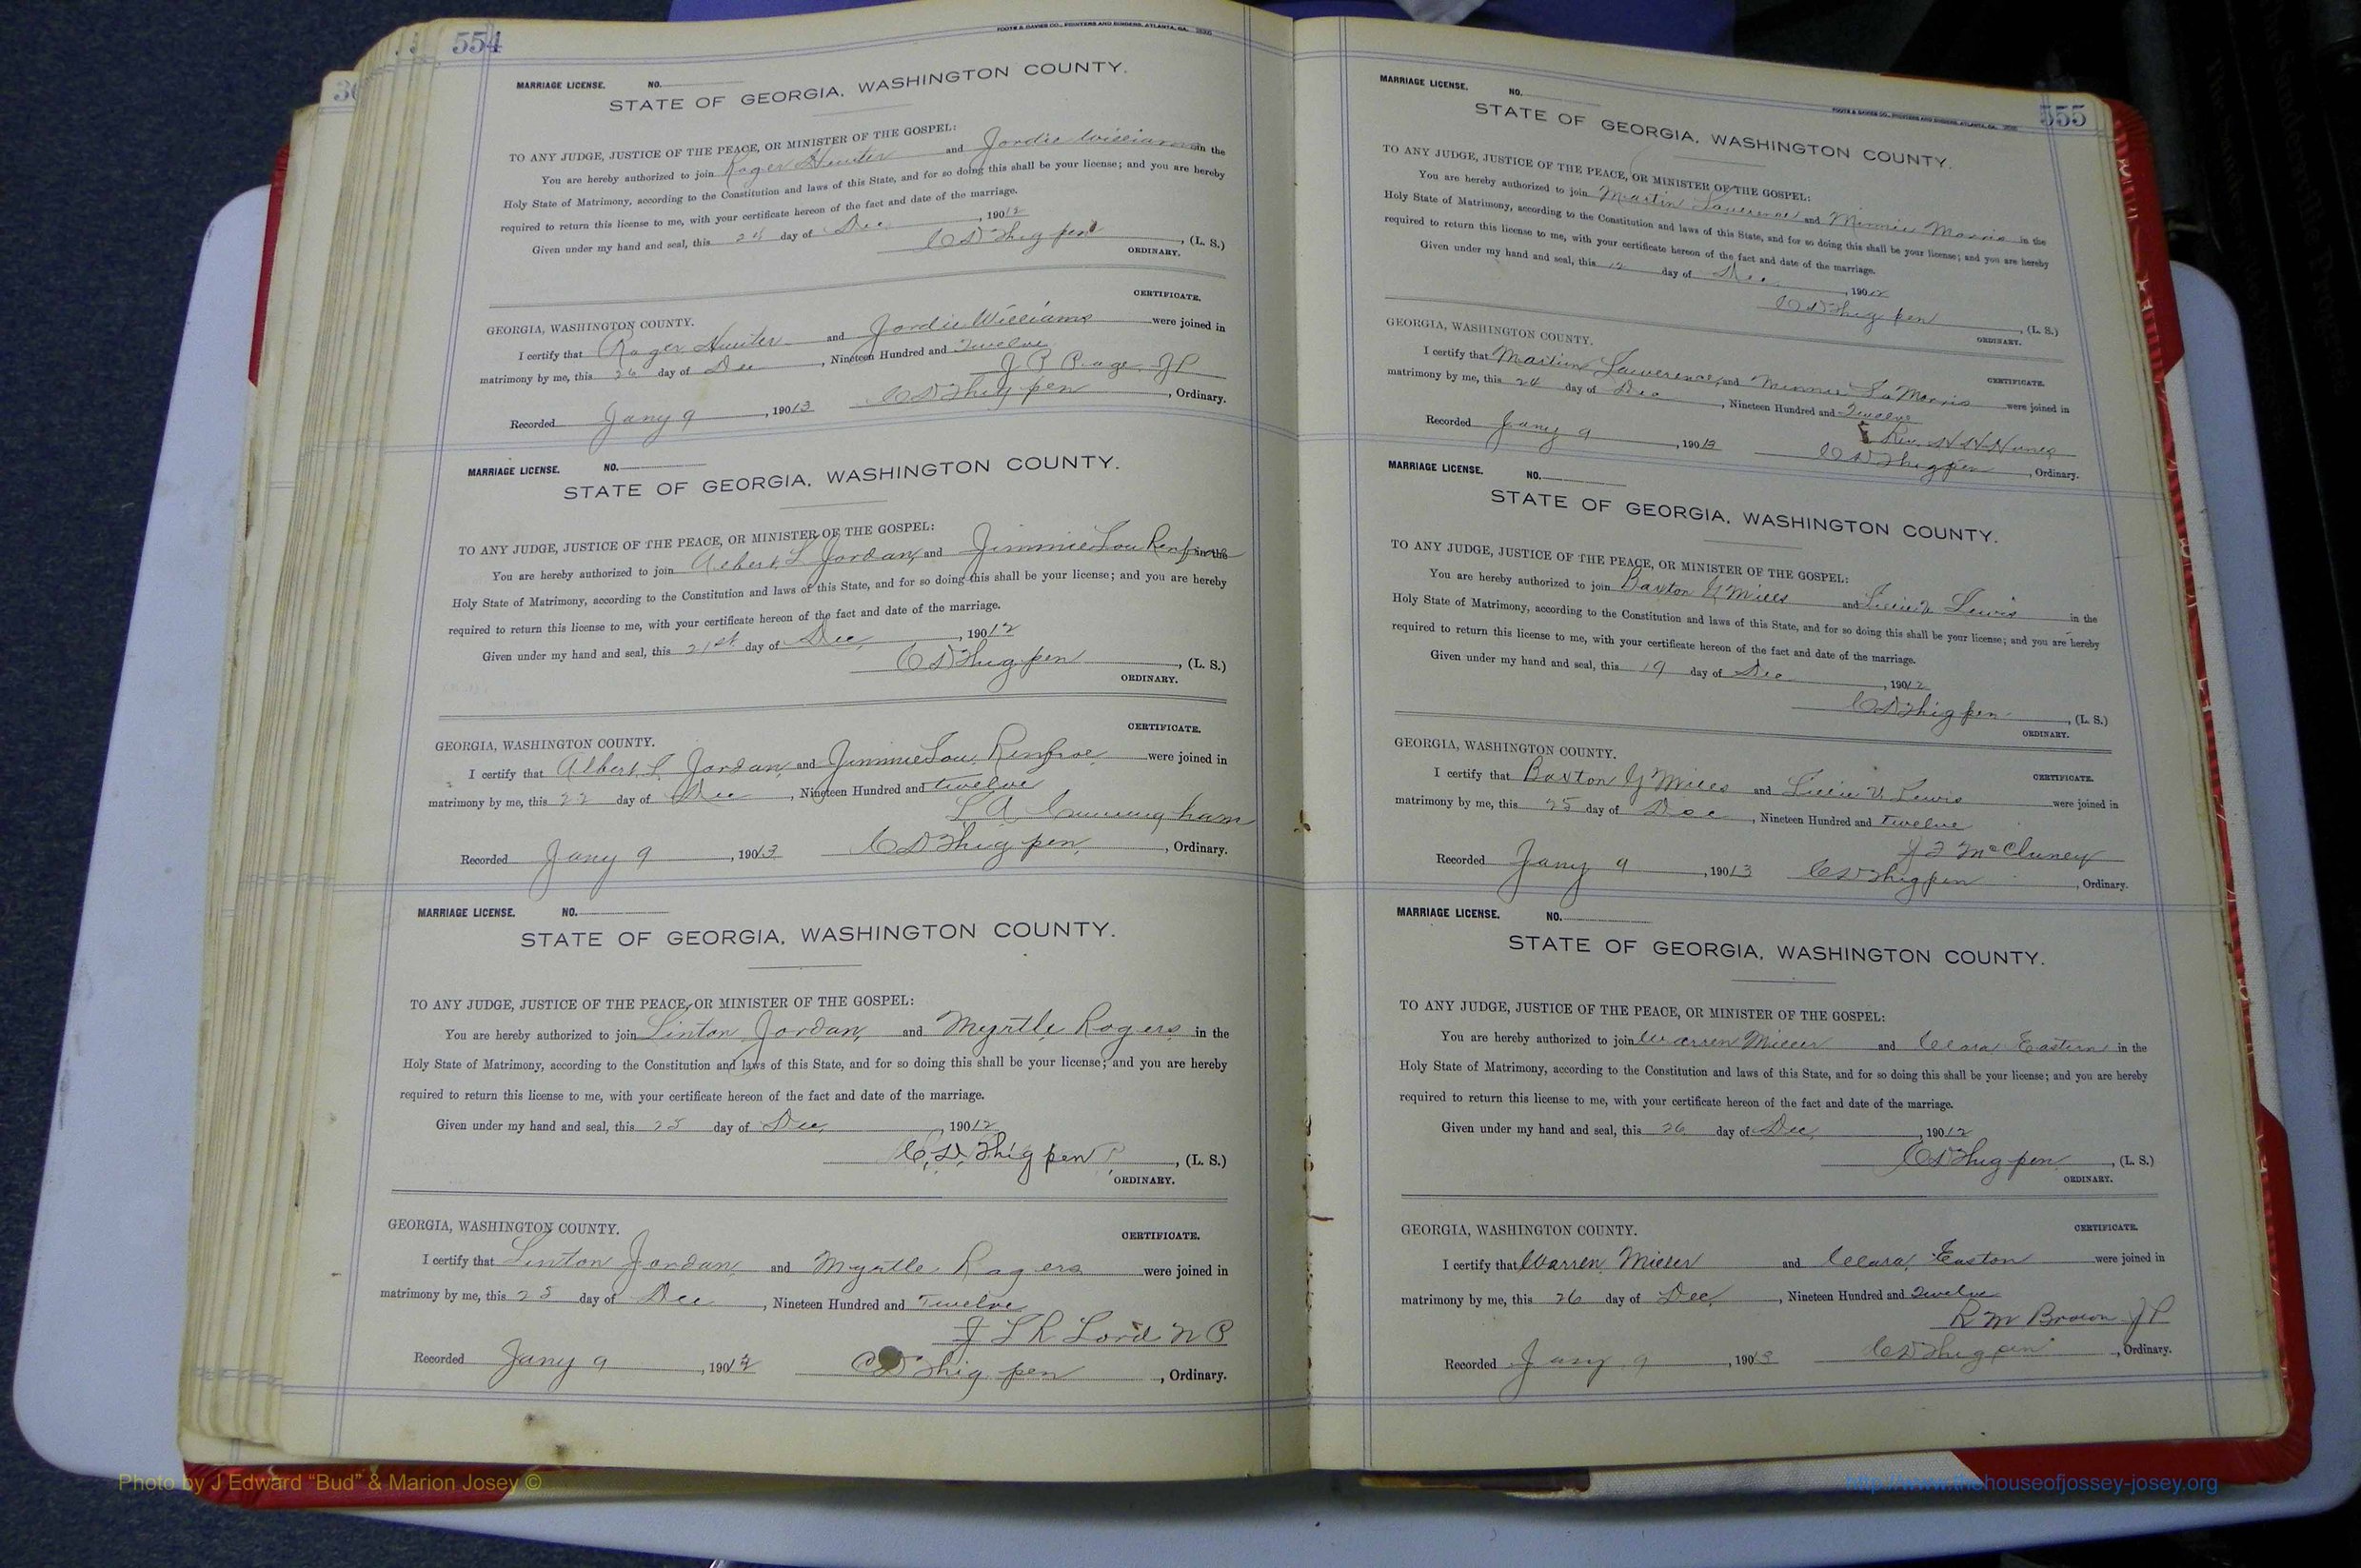 554
FOOTE & DAVIES CO., PRINTERS AND BINDERS, ATLANTA, GA.
MARRIAGE LICENSE. NO.
STATE OF GEORGIA, WASHINGTON COUNTY.
TO ANY JUDGE, JUSTICE OF THE PEACE, OR MINISTER OF THE GOSPEL:
You are hereby authorized to join Roger Hunter and Jordie Williams in the
Holy State of Matrimony, according to the Constitution and laws of this State, and for so doing this shall be your license; and you are hereby
required to return this license to me, with your certificate hereon of the fact and date of the marriage.
Given under my hand and seal, this day of Dec , 19012
C D Thigpen , (L. S.)
ORDINARY.
CERTIFICATE.
GEORGIA, WASHINGTON COUNTY.
I certify that Roger Hunter and Jordie Williams were joined in
matrimony by me, this 26 day of Dec , Nineteen Hundred and Twelve
J P Page JP
Recorded Jany 9 , 19013 C D Thigpen , Ordinary.
MARRIAGE LICENSE. NO.
STATE OF GEORGIA, WASHINGTON COUNTY.
TO ANY JUDGE, JUSTICE OF THE PEACE, OR MINISTER OF THE GOSPEL:
You are hereby authorized to join Albert L Jordan and Jimmie Lou Renfroe in the
Holy State of Matrimony, according to the Constitution and laws of this State, and for so doing this shall be your license; and you are hereby
required to return this license to me, with your certificate hereon of the fact and date of the marriage.
Given under my hand and seal, this 21st day of Dec , 19012
C D Thigpen , (L. S.)
ORDINARY.
CERTIFICATE.
GEORGIA, WASHINGTON COUNTY.
I certify that Albert L Jordan and Jimmie Lou Renfroe were joined in
matrimony by me, this 22 day of Dec , Nineteen Hundred and twelve
L A Cunningham
Recorded Jany 9 , 19013 C D Thigpen , Ordinary.
MARRIAGE LICENSE. NO.
STATE OF GEORGIA, WASHINGTON COUNTY.
TO ANY JUDGE, JUSTICE OF THE PEACE, OR MINISTER OF THE GOSPEL:
You are hereby authorized to join Linton Jordan and Myrtle Rogers in the
Holy State of Matrimony, according to the Constitution and laws of this State, and for so doing this shall be your license; and you are hereby
required to return this license to me, with your certificate hereon of the fact and date of the marriage.
Given under my hand and seal, this 25 day of Dec , 19012
C. D. Thigpen , (L. S.)
ORDINARY.
GEORGIA, WASHINGTON COUNTY.
CERTIFICATE.
I certify that Linton Jordan and Myrtle Rogers were joined in
matrimony by me, this 25 day of Dec , Nineteen Hundred and Twelve
J L R Lord N P
Recorded Jany 9 , 1901 C D Thigpen , Ordinary.
555
FOOTE & DAVIES CO., PRINTERS AND BINDERS, ATLANTA, GA.
MARRIAGE LICENSE. NO.
STATE OF GEORGIA, WASHINGTON COUNTY.
TO ANY JUDGE, JUSTICE OF THE PEACE, OR MINISTER OF THE GOSPEL:
You are hereby authorized to join Martin Lawrence and Minnie Morris in the
Holy State of Matrimony, according to the Constitution and laws of this State, and for so doing this shall be your license; and you are hereby
required to return this license to me, with your certificate hereon of the fact and date of the marriage.
Given under my hand and seal, this 12 day of Dec , 19012
C D Thigpen , (L. S.)
ORDINARY.
GEORGIA, WASHINGTON COUNTY.
CERTIFICATE.
I certify that Martin Lawerence and Minnie La Morris were joined in
matrimony by me, this 24 day of Dec , Nineteen Hundred and Twelve
Rev. H H
Recorded Jany 9 , 19013 C D Thigpen , Ordinary.
MARRIAGE LICENSE. NO.
STATE OF GEORGIA, WASHINGTON COUNTY.
TO ANY JUDGE, JUSTICE OF THE PEACE, OR MINISTER OF THE GOSPEL:
You are hereby authorized to join Baxton Y Mills and Lillie V Lewis in the
Holy State of Matrimony, according to the Constitution and laws of this State, and for so doing this shall be your license; and you are hereby
required to return this license to me, with your certificate hereon of the fact and date of the marriage.
Given under my hand and seal, this 19 day of Dec , 19012
C D Thigpen , (L. S.)
ORDINARY.
GEORGIA, WASHINGTON COUNTY.
CERTIFICATE.
I certify that Baxton Y Mills and Lillie V. Lewis were joined in
matrimony by me, this 25 day of Dec , Nineteen Hundred and Twelve
J F McCluney
Recorded Jany 9 , 19013 C D Thigpen , Ordinary.
MARRIAGE LICENSE. NO.
STATE OF GEORGIA, WASHINGTON COUNTY.
TO ANY JUDGE, JUSTICE OF THE PEACE, OR MINISTER OF THE GOSPEL:
You are hereby authorized to join Warren Miller and Clara Eastern in the
Holy State of Matrimony, according to the Constitution and laws of this State, and for so doing this shall be your license; and you are hereby
required to return this license to me, with your certificate hereon of the fact and date of the marriage.
Given under my hand and seal, this 26 day of Dec , 19012
C D Thigpen , (L. S.)
ORDINARY.
GEORGIA, WASHINGTON COUNTY.
CERTIFICATE.
I certify that Warren Miller and Clara Easton were joined in
matrimony by me, this 26 day of Dec , Nineteen Hundred and Twelve
R M Brown J P
Recorded Jany 9 , 19013 C D Thigpen , Ordinary.
Photo by J Edward “Bud” & Marion Josey ©
http://www.thehouseofjossey-josey.org